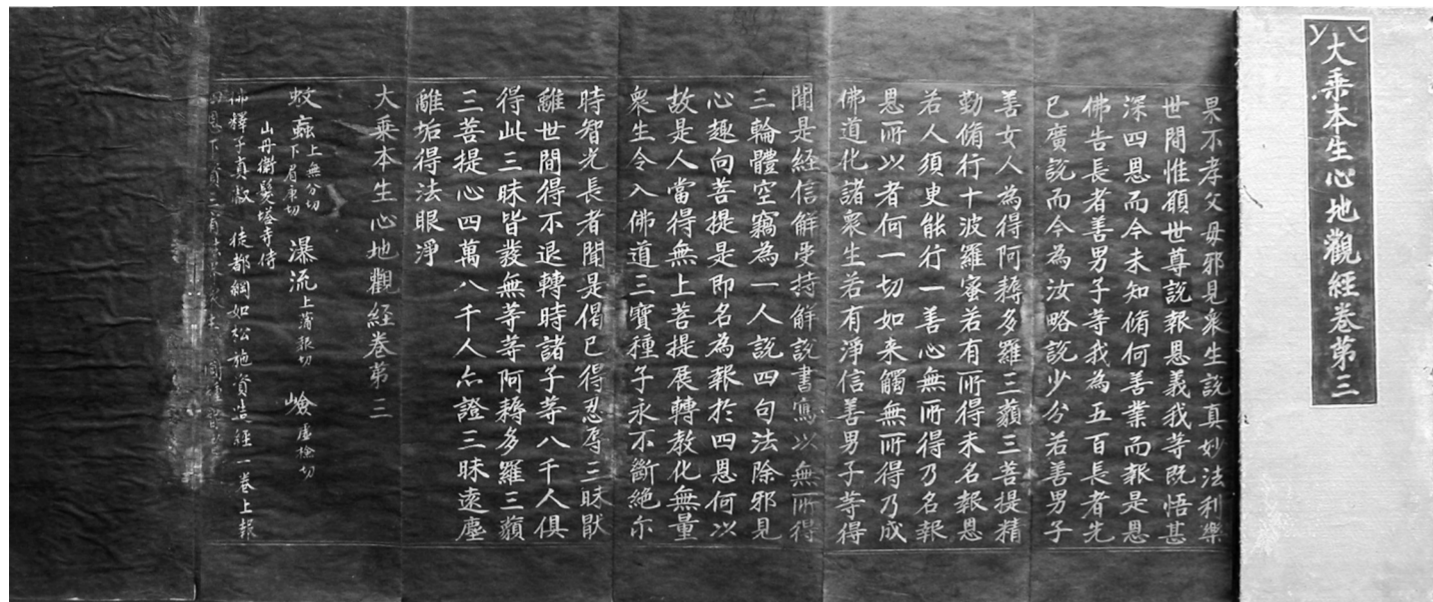 大乘本生心地觀經卷第三
果不孝父母邪見衆生說真妙法利樂
世間惟願世尊說報恩義我等旣悟甚
深四恩而今未知脩何善業而報是恩
佛告長者善男子等我為五百長者先
已廣說而今為汝略說少分若善男子
善女人為得阿耨多羅三藐三菩提精
勤脩行十波羅蜜若有所得未名報恩
若人須臾能行一善心無所得乃名報
恩所以者何一切如来觸無所得乃成
佛道化諸衆生若有淨信善男子等得
聞是經信解受持解說書寫以無所得
三輪體空竊為一人說四句法除邪見
心趣向菩提是即名為報於四恩何以
故是人當得無上菩提展轉教化無量
衆生令入佛道三寶種子永不斷絕尒
時智光長者聞是偈已得忍辱三昧猒
離世間得不退轉時諸子等八千人俱
得此三昧皆發無等等阿耨多羅三藐
三菩提心四萬八千人亦證三昧遠塵
離垢得法眼淨
大乘本生心地觀經卷第三
蚊蝱上無分切下眉庚切 瀑流上蒲報切 嶮虛檢切
山丹衛髮塔寺侍
佛釋子真 徒都綱如松施資造經一卷上報